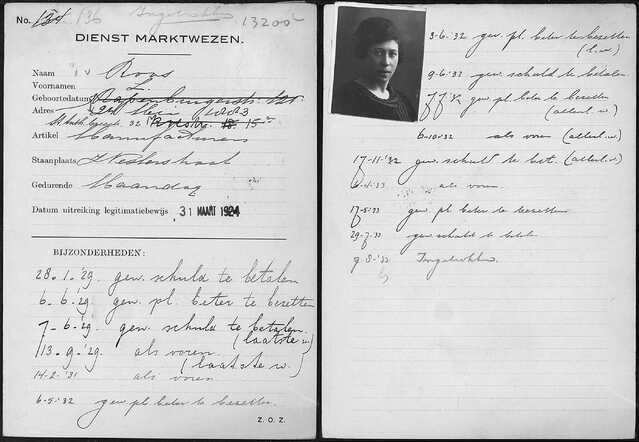 No. 134 136 Ingetrokken 13200
DIENST MARKTWEZEN.
Naam Roos
Voornamen
Geboortedatum
Adres
Artikel Manufacturen
Staanplaats Westerstraat
Gedurende Maandag
Datum uitreiking legitimatiebewijs 31 MAART 1924
BIJZONDERHEDEN:
28.1.'29. gew. schuld te betalen
6-6-'29. gew. pl. beter te bezetten
7-6-'29. gew. schuld te betalen.
(laatste w.)
13.9-'29. als voren.
(laatste w.)
14-2-'31 als voren
6-5-'32 gew. pl. beter te bezetten.
Z. O. Z.
3-6-'32 gew. pl. beter te bezetten
(l.w.)
9-6-'32 gew. schuld te betalen.
gew. pl. beter te bezetten
(allerl. w.)
6-10-'32 als voren (allerl. w.)
17-11-'32 gew. schuld te bet. (allerl. w.)
6-4-'33 als voren.
17-5-'33 gew. pl. beter te bezetten
29-7-'33 gew. schuld te betalen
9-8-'33 Ingetrokken